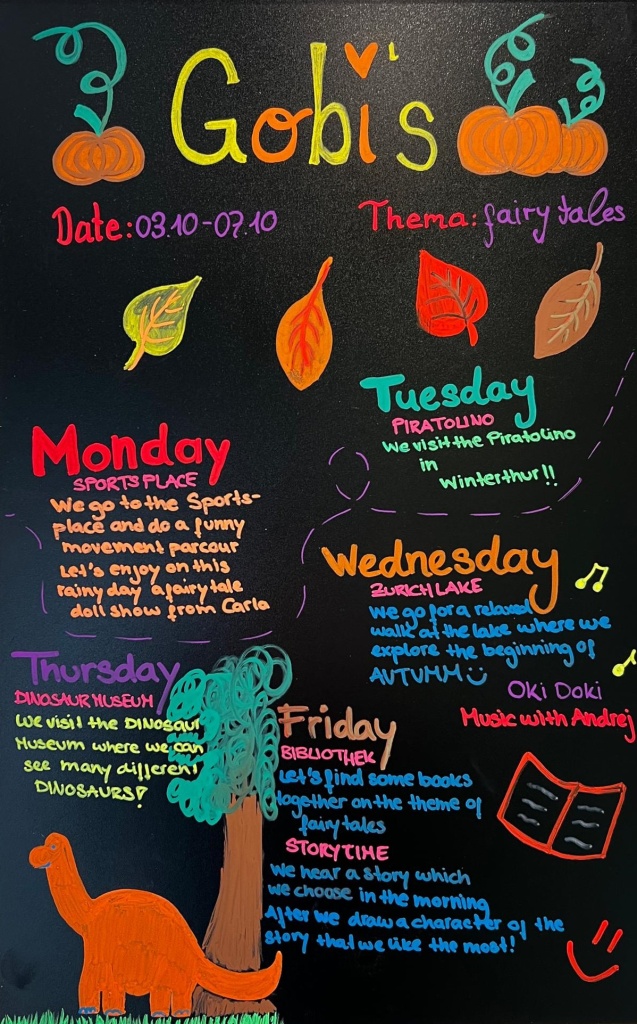 Gobi's
Date: 03.10-07.10
Thema: fairy tales
Monday
SPORTS PLACE
We go to the Sports-
place and do a funny
movement parcour
Let's enjoy on this
rainy day a fairy tale
doll show from Carla
Tuesday
PIRATOLINO
We visit the Piratolino
in
Winterthur!!
Wednesday
ZURICH LAKE
We go for a relaxed
walk at the lake where we
explore the beginning of
AUTUMM
Oki Doki
Music with Andrej
Thursday
DINOSAUR MUSEUM
We visit the DINOSAUR
Museum where we can
see many different
DINOSAURS!
Friday
BIBLIOTHEK
Let's find some books
together on the theme of
fairy tales
STORYTIME
We hear a story which
we choose in the morning
After we draw a character of the
story that we like the most!